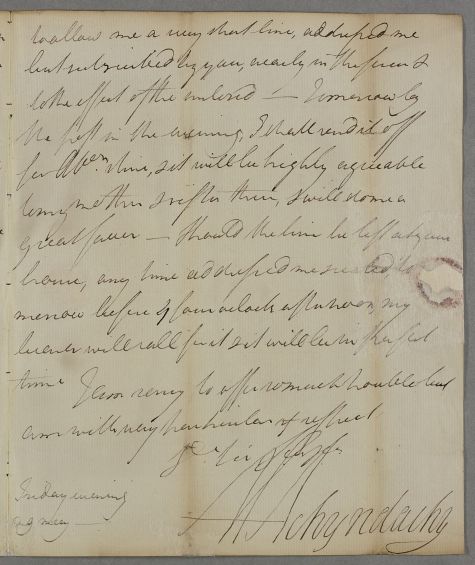 to allow me a very short line, addressed me
but subscribed by you, nearly in the form &
to the effect of the inclosed — Tomorrow by
the post in the evening, I shall send it off
for Abdn. shire, & it will be highly agreeable
to my mother & sister there, & will do me a
great favor — Should the line be left at your
house, any time addressed me sealed to
morrow before 4 four o'clock afternoon, my
servant will call for it & it will be in perfect
time I am sorry to offer so much trouble but
am with very particular & respect
Sir
Friday evening
29 May —